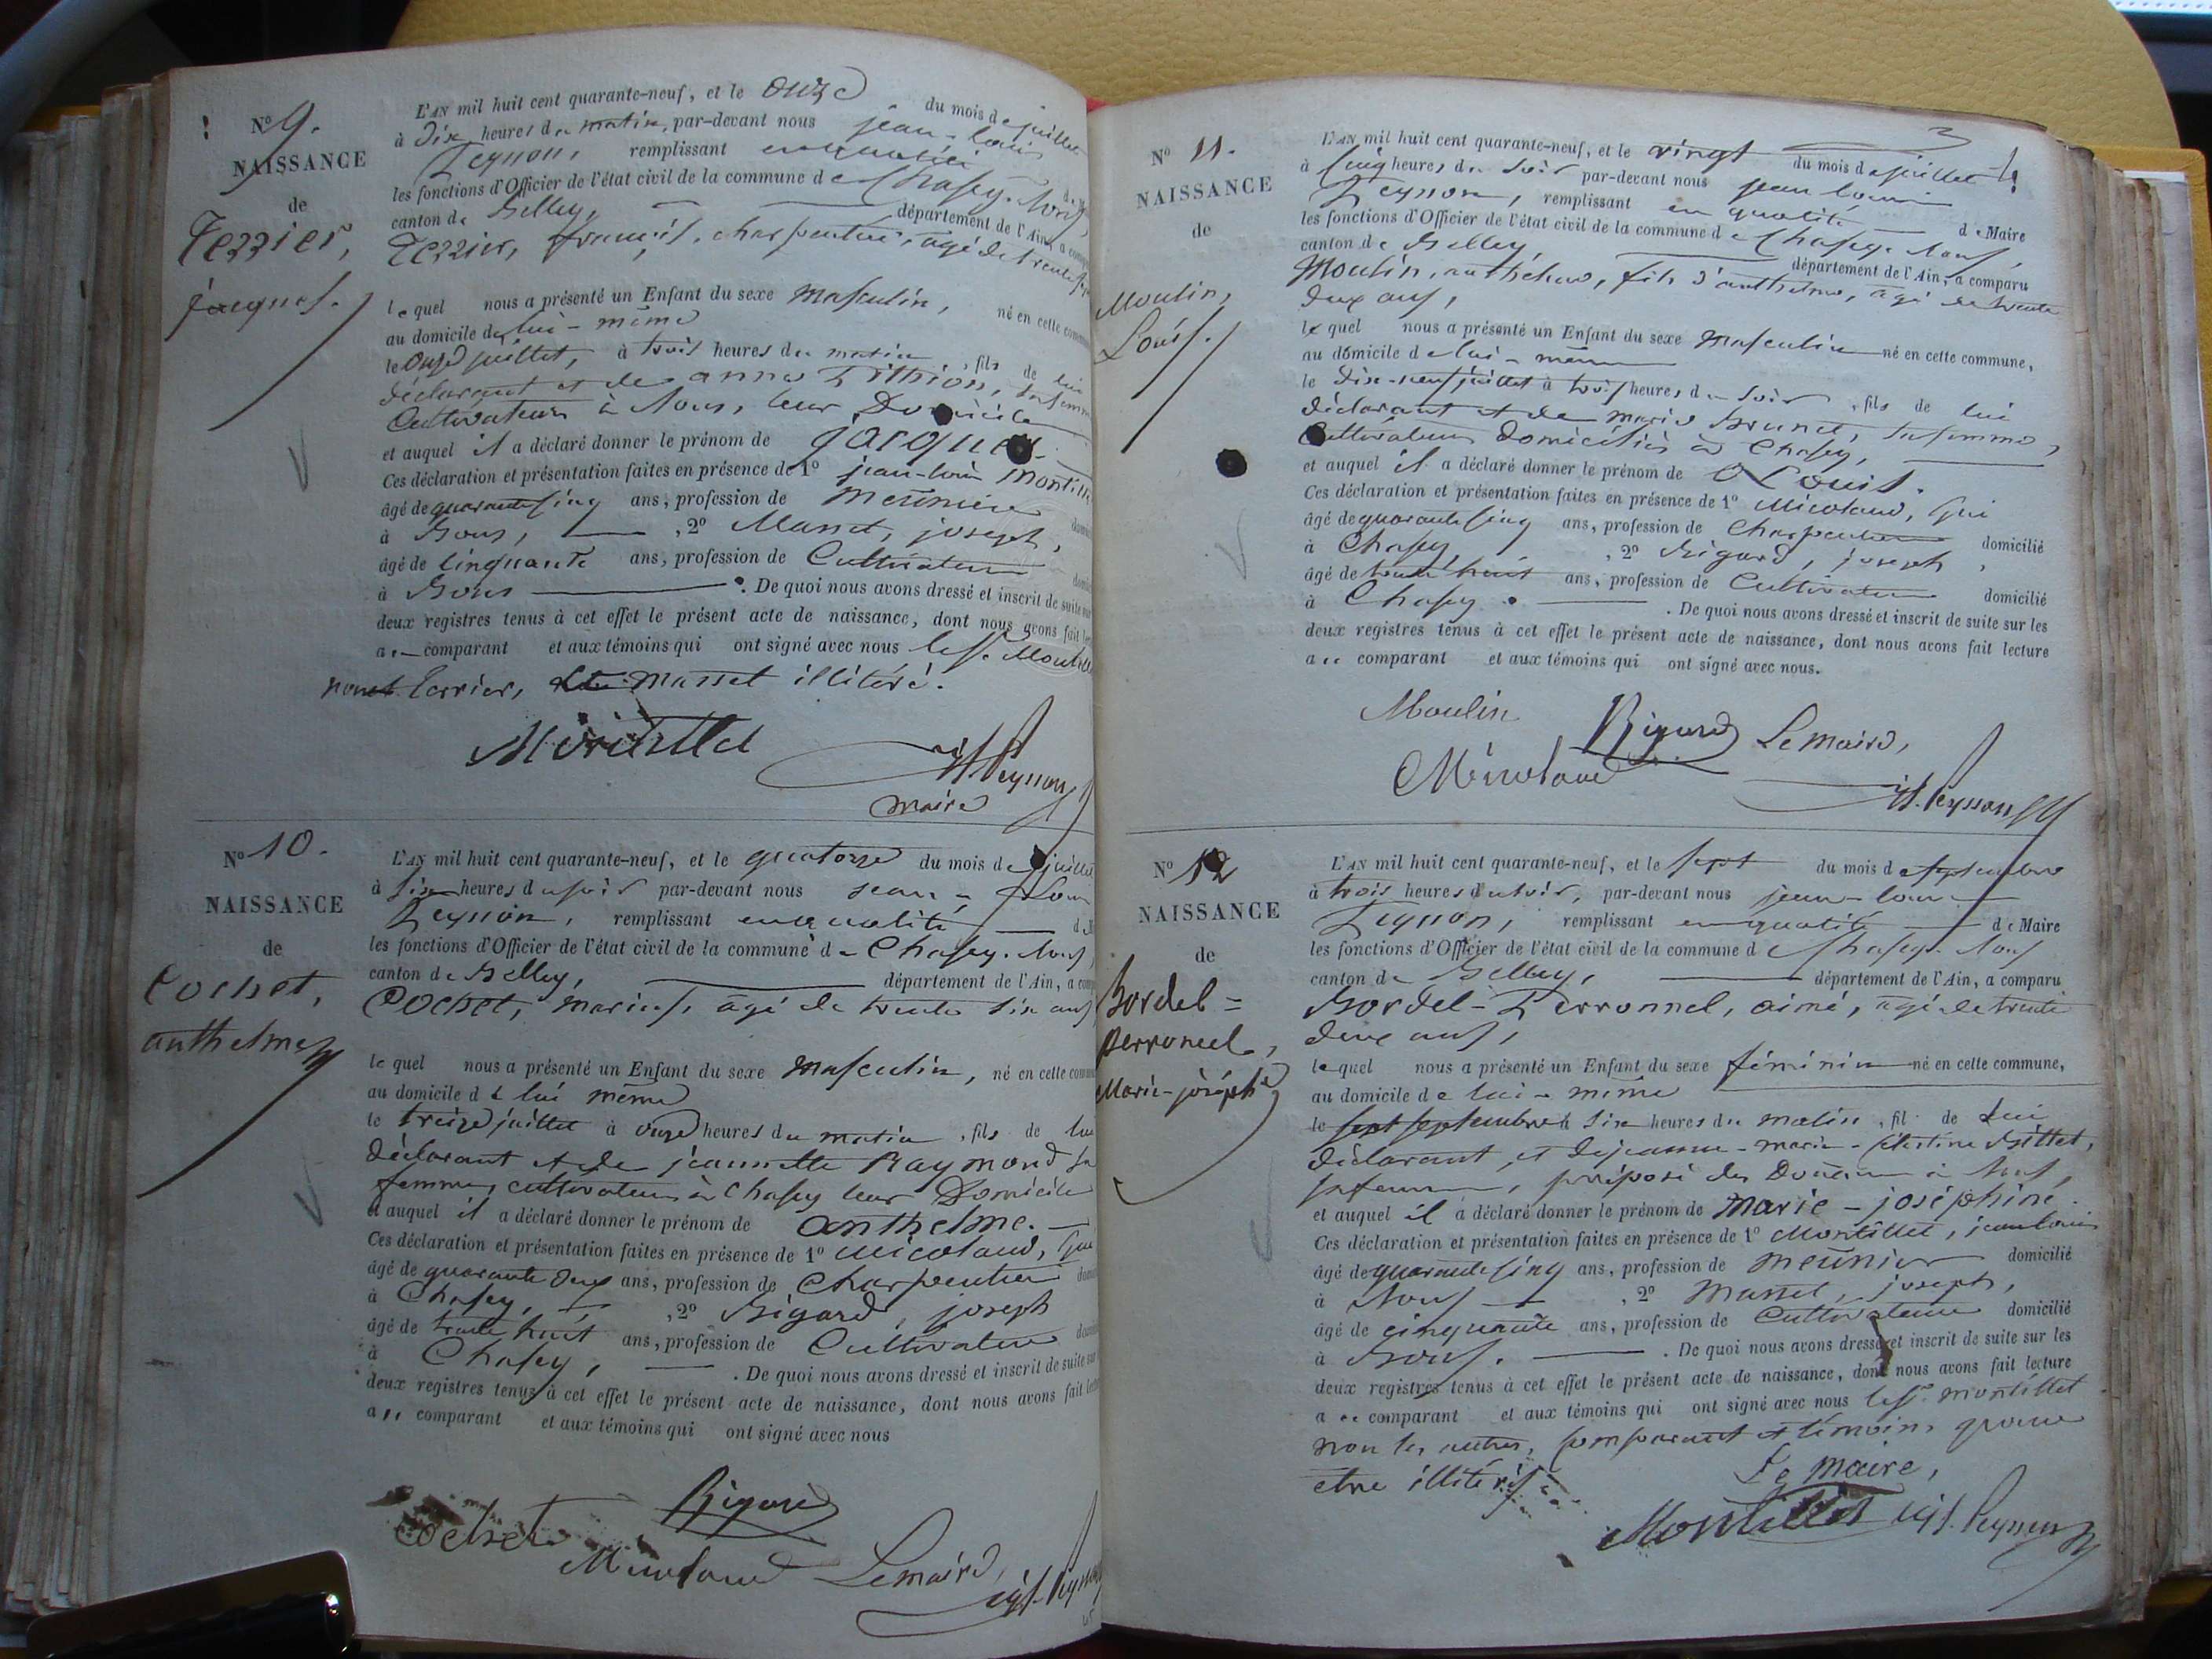 N° 9.
NAISSANCE
de
Terrier,
jacques.
L'AN mil huit cent quarante-neuf, et le onze du mois de juillet
à dix heures du matin, par-devant nous jean-louis
Peysson, remplissant en qualité
les fonctions d'Officier de l'état civil de la commune de Chasey-Bons,
canton de Belley, département de l'Ain, a
Terrier, françois, charpentier, agé de trente
lequel nous a présenté un Enfant du sexe masculin, né en cette
au domicile de lui-même
le onze juillet, à trois heures du matin, fils de lui
déclarant et de anne sa femme
Cultivateurs à Bons, leur Domicile
et auquel il a déclaré donner le prénom de jacques.
Ces déclaration et présentation faites en présence de 1° jean-louis Montillet
âgé de quarante cinq ans, profession de meûnier
à Bons, 2° Masset, joseph,
âgé de cinquante ans, profession de Cultivateur
à Bons. De quoi nous avons dressé et inscrit de suite sur
deux registres tenus à cet effet le présent acte de naissance, dont nous avons fait
au comparant et aux témoins qui ont signé avec nous le sr. Montillet
non terrier, Masset illitéré.
Montillet
Peysson
maire
N° 10.
NAISSANCE
de
Cochet,
anthelme
L'AN mil huit cent quarante-neuf, et le quatorze du mois de juillet
à six heures du soir par-devant nous jean-Louis
Peysson, remplissant en qualité
les fonctions d'Officier de l'état civil de la commune de Chasey-Bons,
canton de Belley, département de l'Ain, a
Cochet, marius, agé de trente six ans
lequel nous a présenté un Enfant du sexe masculin, né en cette
au domicile de lui même
le treize juillet à onze heures du matin, fils de lui
déclarant et de jeannette Raymond sa
femme, cultivateurs à Chasey leur Domicile
et auquel il a déclaré donner le prénom de anthelme.
Ces déclaration et présentation faites en présence de 1° Micoland,
âgé de quarante deux ans, profession de Charpentier
à Chasey, 2° Bigard, joseph
âgé de trente huit ans, profession de Cultivateur
à Chasey, De quoi nous avons dressé et inscrit de suite sur
deux registres tenus à cet effet le présent acte de naissance, dont nous avons fait
au comparant et aux témoins qui ont signé avec nous
Bigard
Cochet
Micoland Lemaire,
Peysson
N° 11.
NAISSANCE
de
Moulin,
Louis.
L'AN mil huit cent quarante-neuf, et le vingt du mois de juillet
à cinq heures du soir par-devant nous jean louis
Peysson, remplissant en qualité de Maire
les fonctions d'Officier de l'état civil de la commune de Chasey-Bons,
canton de Belley, département de l'Ain, a comparu
Moulin, anthelme, fils d'anthelme, agé de trente
deux ans,
lequel nous a présenté un Enfant du sexe masculin né en cette commune,
au domicile de lui-même
le dix-neuf juillet à trois heures du soir, fils de lui
déclarant et de marie Brunet, sa femme,
Cultivateurs domiciliés à Chasey,
et auquel il a déclaré donner le prénom de Louis.
Ces déclaration et présentation faites en présence de 1° Micoland,
âgé de quarante cinq ans, profession de Charpentier domicilié
à Chasey, 2° Bigard, joseph,
âgé de trente huit ans, profession de Cultivateur domicilié
à Chasey. De quoi nous avons dressé et inscrit de suite sur les
deux registres tenus à cet effet le présent acte de naissance, dont nous avons fait lecture
au comparant et aux témoins qui ont signé avec nous.
Moulin Bigard Lemaire,
Micoland Peysson
N° 12
NAISSANCE
de
Bordel=
perronnel,
Marie-joséphe
L'AN mil huit cent quarante-neuf, et le sept du mois de septembre
à trois heures du soir, par-devant nous jean-louis
Peysson, remplissant en qualité de Maire
les fonctions d'Officier de l'état civil de la commune de Chasey-Bons
canton de Belley, département de l'Ain, a comparu
Bordel-Perronnel, aimé, agé de trente
deux ans,
lequel nous a présenté un Enfant du sexe féminin né en cette commune,
au domicile de lui-même
le sept septembre à six heures du matin, fil de lui
déclarant, et de jeanne-marie-célestine Billet,
sa femme, préposé des Douanes à Bons,
et auquel il a déclaré donner le prénom de marie-joséphine.
Ces déclaration et présentation faites en présence de 1° Montillet, jean louis
âgé de quarante cinq ans, profession de meûnier domicilié
à Bons 2° Masset, joseph,
âgé de cinquante ans, profession de Cultivateur domicilié
à Bons. De quoi nous avons dressé et inscrit de suite sur les
deux registres tenus à cet effet le présent acte de naissance, dont nous avons fait lecture
au comparant et aux témoins qui ont signé avec nous le sr. montillet
non les autres, comparant et témoin, pour
etre illitérés
Le maire,
Montillet Peysson